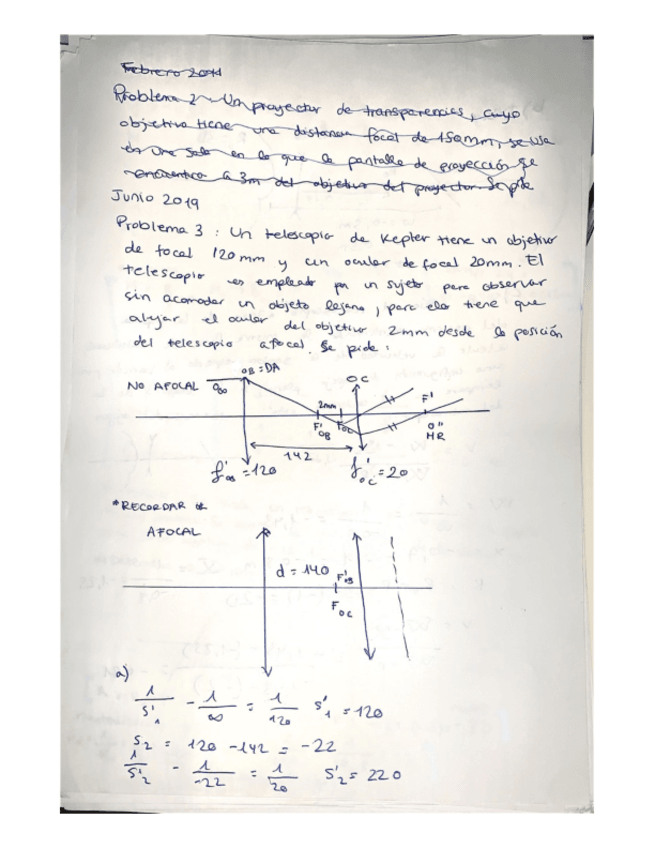 Febrero 2011
Problema 2 Un proyector de transparencias, cuyo
objetivo tiene una distancia focal de 150mm, se usa
en una sala en la que la pantalla de proyección se
encuentra a 3m del objetivo del proyector. Se pide
Junio 2019
Problema 3 : Un telescopio de Kepler tiene un objetivo
de focal 120mm y un ocular de focal 20mm. El
telescopio es empleado por un sujeto para observar
sin acomodar un objeto lejano, para ello tiene que
alejar el ocular del objetivo 2mm desde la posición
del telescopio afocal. Se pide :
OB = DA
NO AFOCAL
OC
2mm
F'
F'OB
FOC
O''
HR
142
= 120
f'oc = 20
*RECORDAR
AFOCAL
d = 140
F'OB
FOC
a)
1/S'1 - 1/∞ = 1/120 S'1 = 120
S2 = 120 - 142 = -22
1/S'2 - 1/-22 = 1/20 S'2 = 220